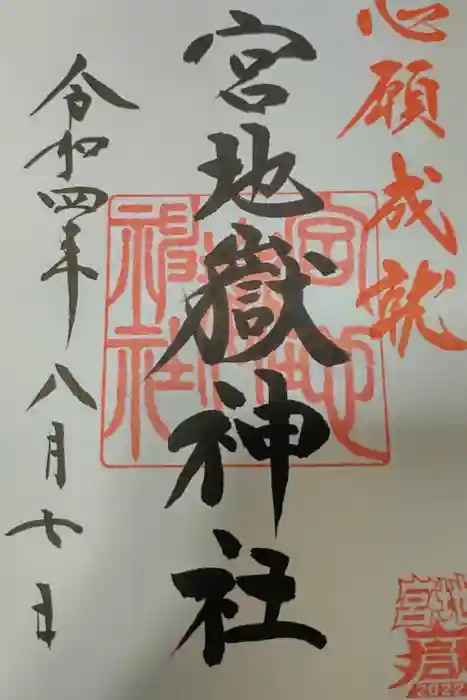 心願成就
宮地嶽神社
令和四年八月七日
宮地嶽
神社
宮地
嶽
2022